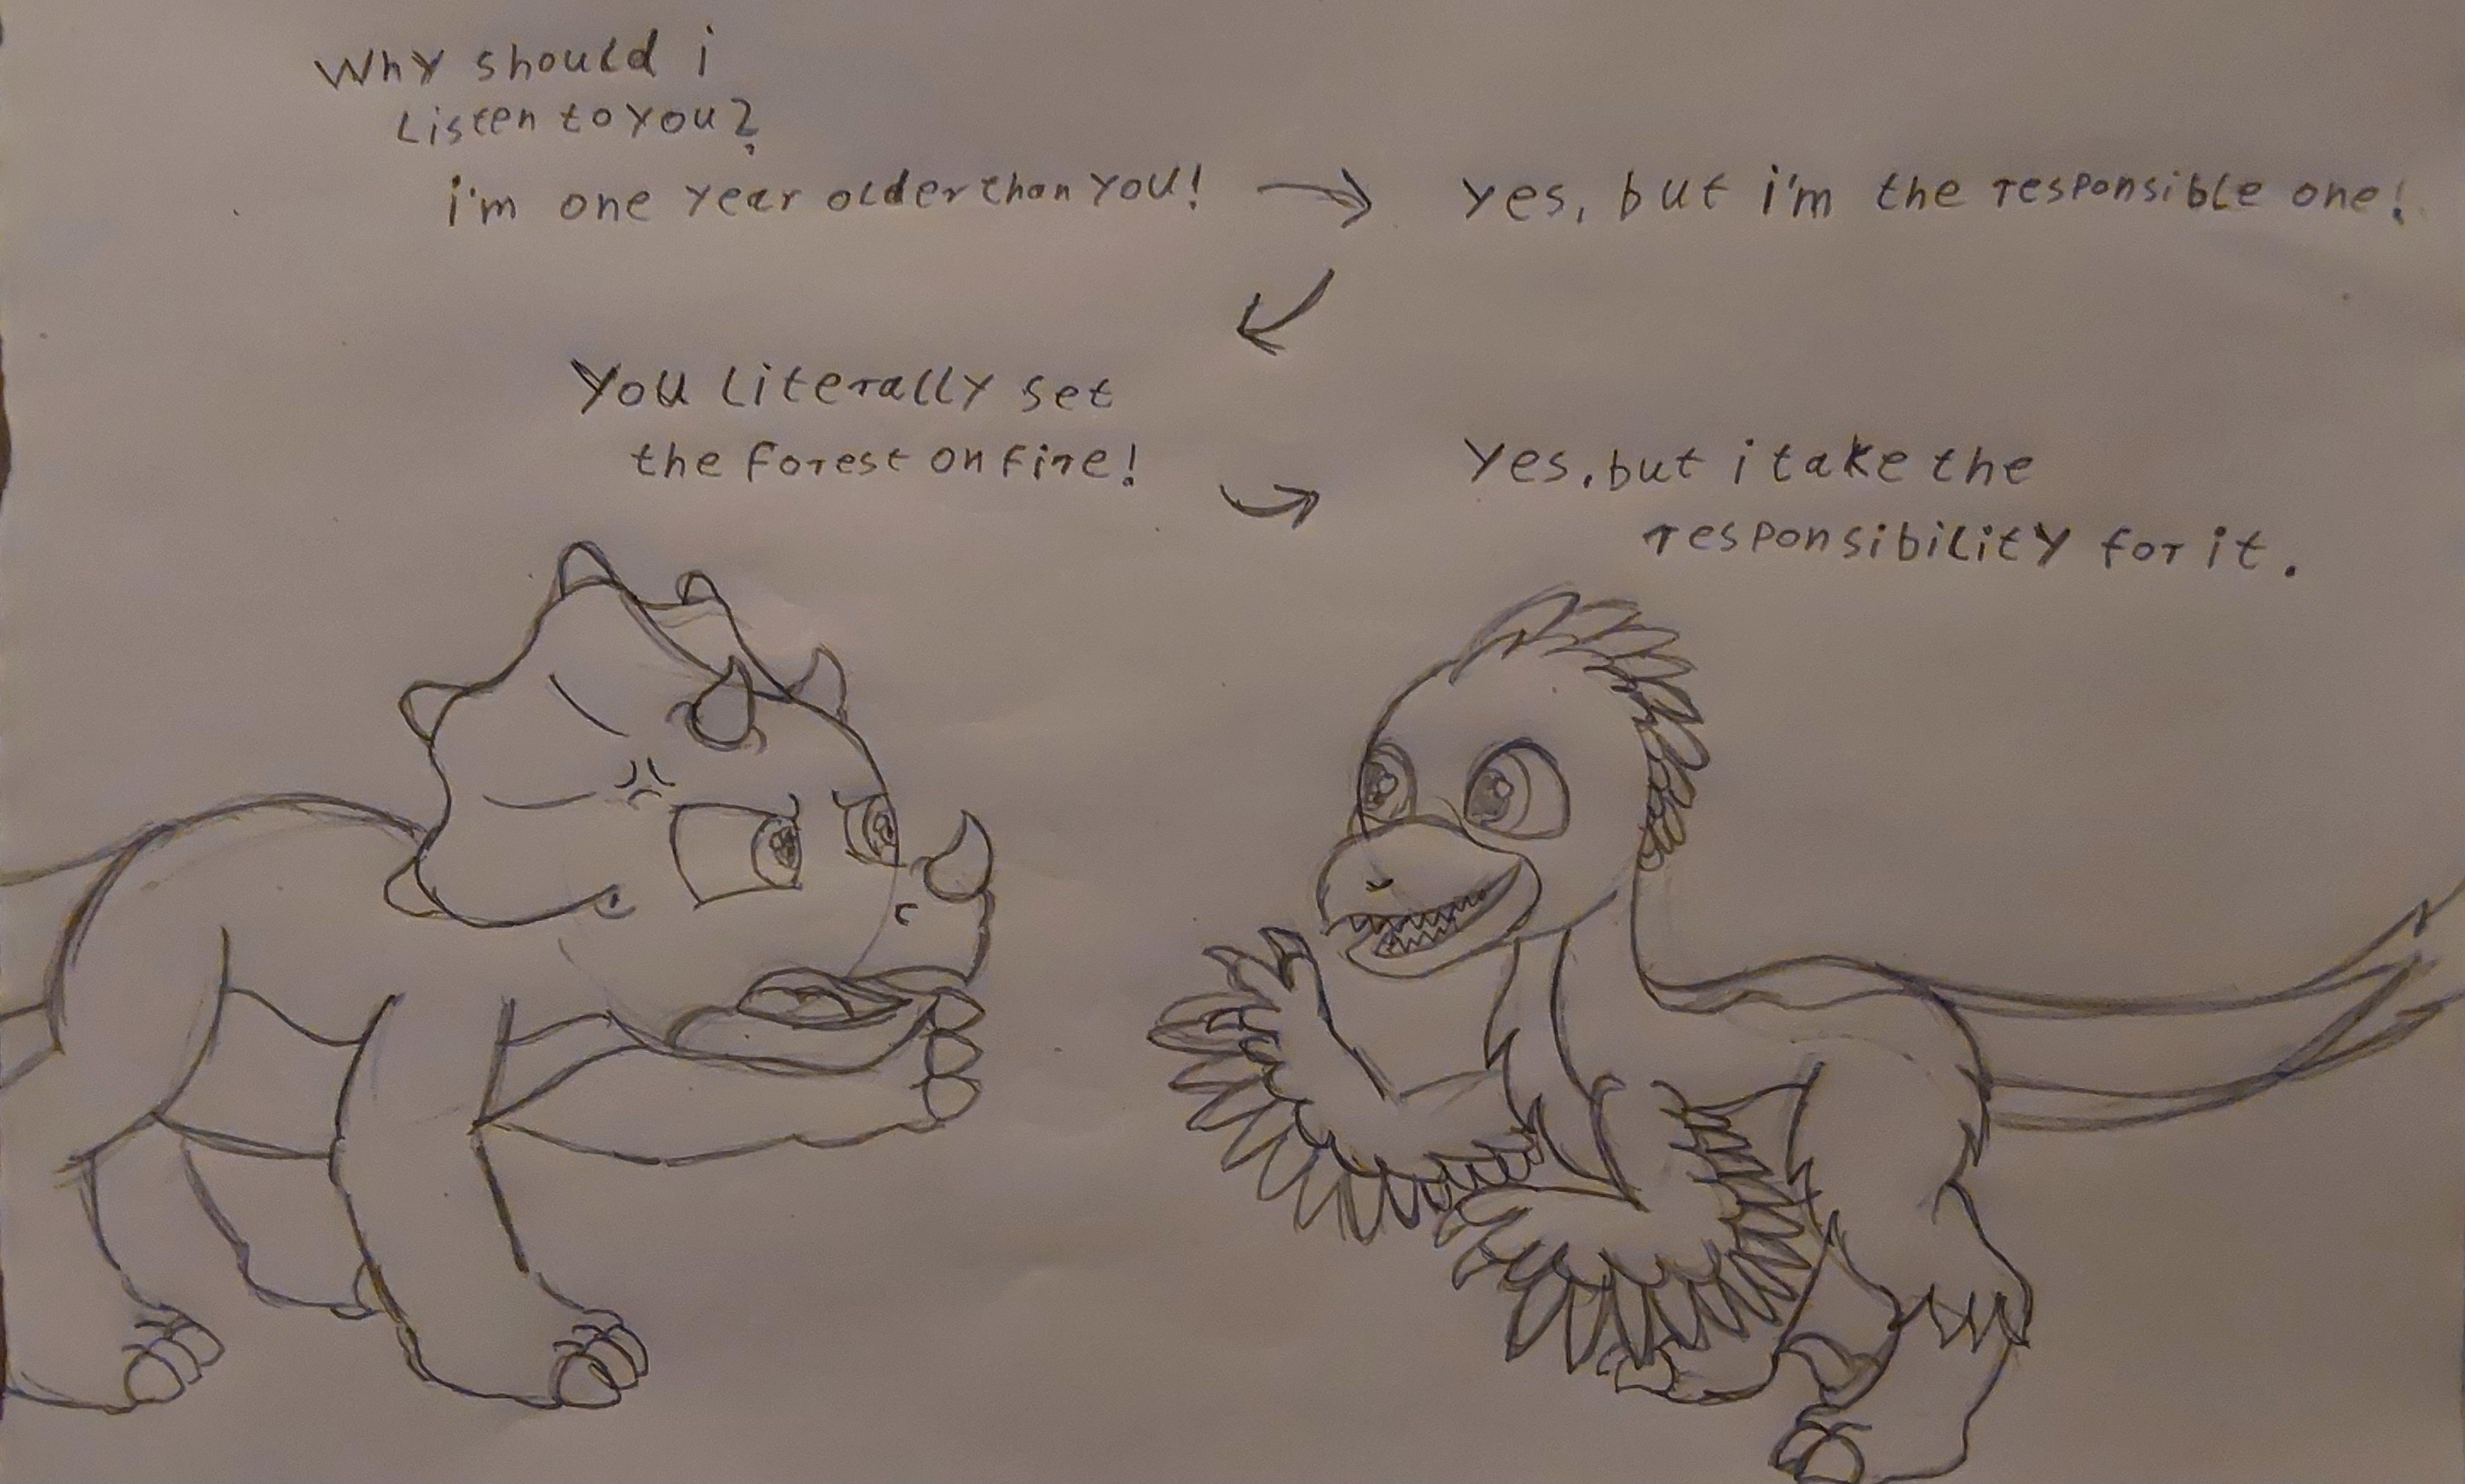 Why should i
Listen to you?
i'm one year older than you!
yes, but i'm the responsible one!
You Literally set
the forest on fire!
Yes, but i take the
responsibility for it.